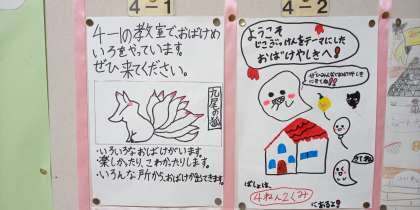 4-1
4-1の教室でおばけめ
いろをやっています。
ぜひ来てください。
九尾の狐
・いろいろなおばけがいます。
・楽しかったり、こわかったりします。
・いろんな所から、おばけが出てきます。
4-2
ようこそ
じごぶっけんをテーマにした
おばけやしきへ!
きてね
ばしょは、
4ねん2くみ
にあるよ!